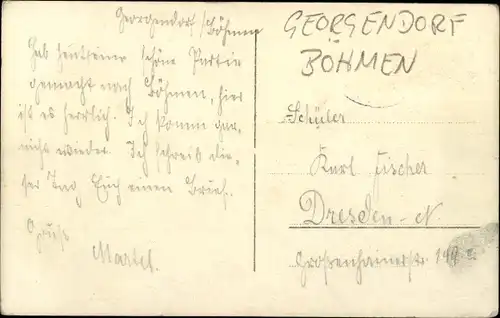 Georgendorf /Böhmen
Hab heut eine schöne Partie
gemacht nach Böhmen, hier
ist es herrlich. Ich komm gar
nicht wieder. Ich schreib die-
ser Tag Euch einen Brief.
Gruß
Martel.
GEORGENDORF
BÖHMEN
Schüler
Karl Fischer
Dresden-N.
Großenhainerstr. 149